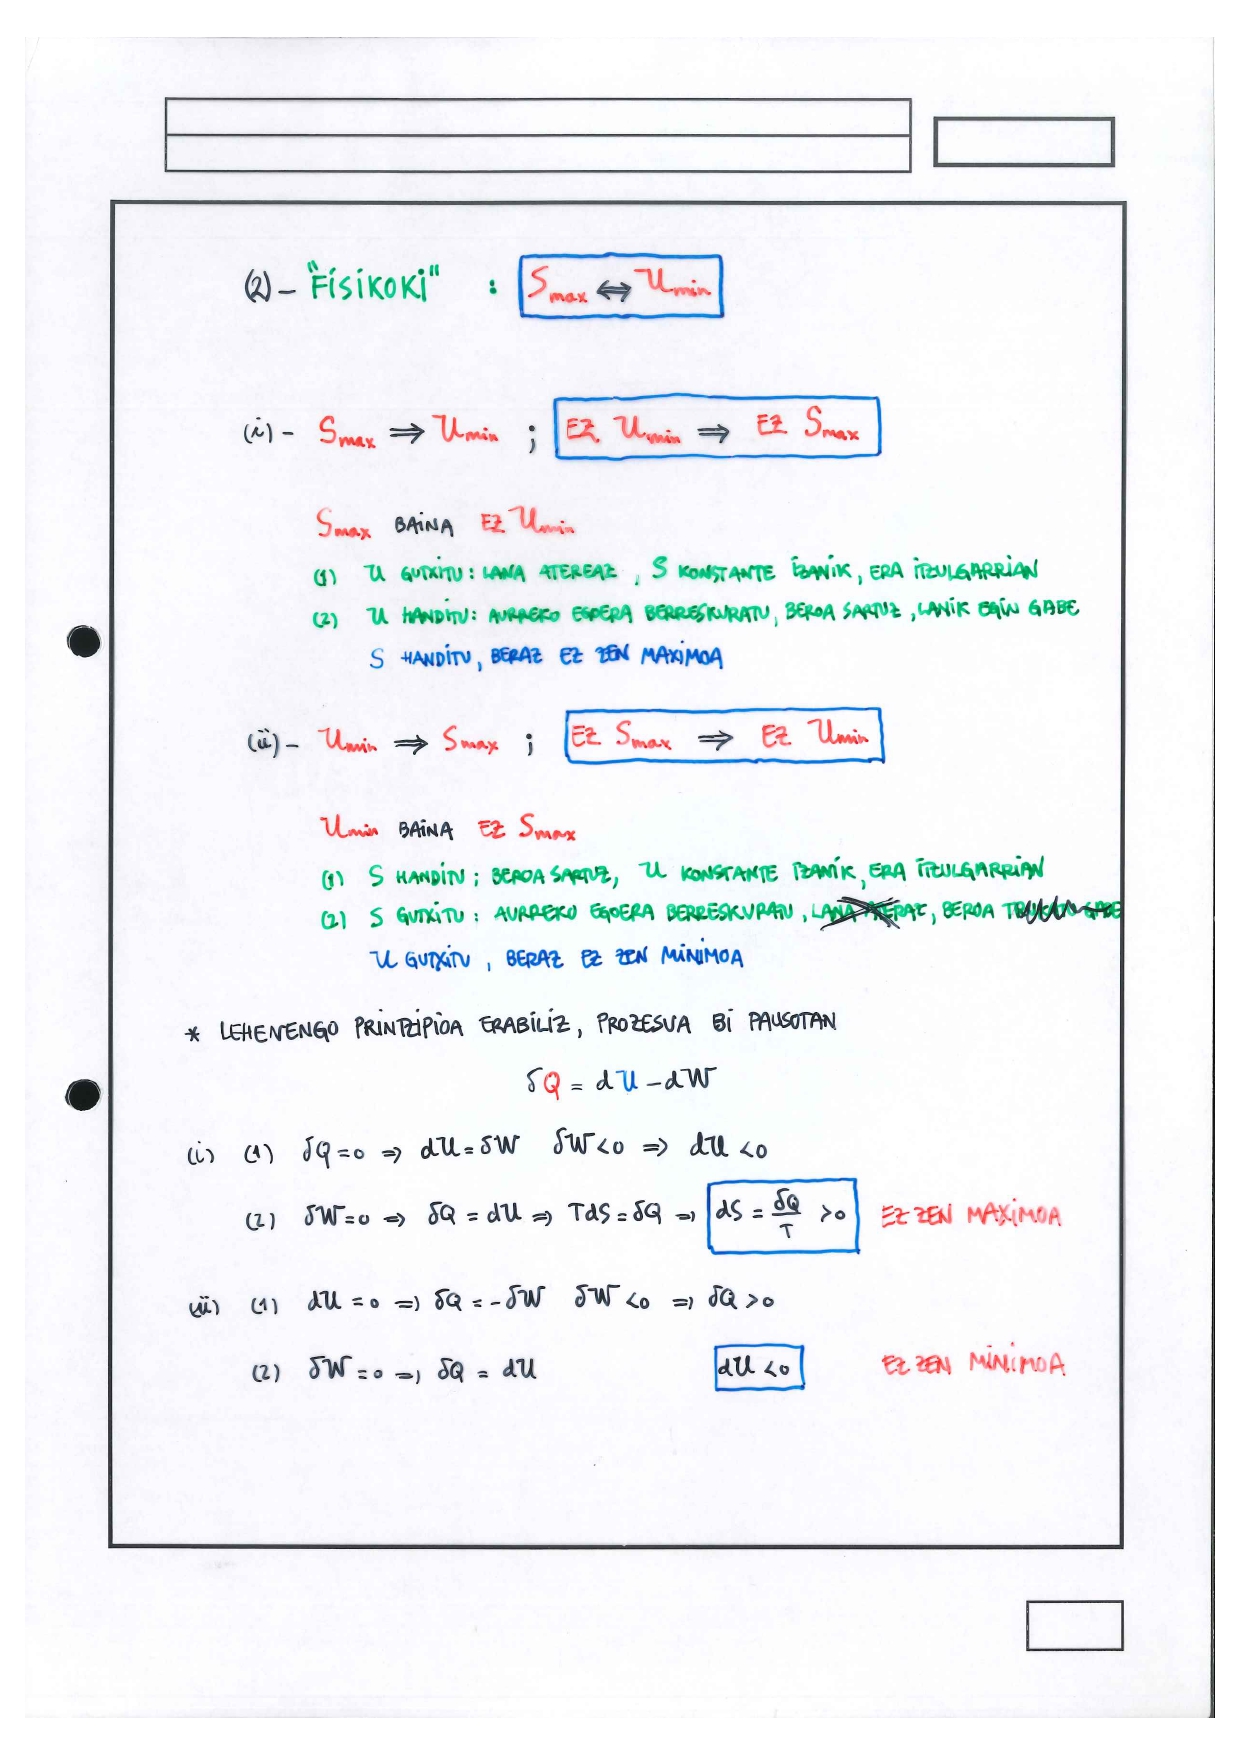 (2) - "FÍSIKOKI" : Smax ⇔ Umin
(i) - Smax ⇒ Umin ; EZ Umin ⇒ EZ Smax
Smax BAINA EZ Umin
(1) U GUTXITU: LANA ATEREAZ, S KONSTANTE IZANIK, ERA ITZULGARRIAN
(2) U HANDITU: AURREKO EGOERA BERRESKURATU, BEROA SARTUZ, LANIK EGIN GABE
S HANDITU, BERAZ EZ ZEN MAXIMOA
(ii) - Umin ⇒ Smax ; EZ Smax ⇒ EZ Umin
Umin BAINA EZ Smax
(1) S HANDITU: BEROA SARTUZ, U KONSTANTE IZANIK, ERA ITZULGARRIAN
(2) S GUTXITU: AURREKO EGOERA BERRESKURATU, BEROA
U GUTXITU, BERAZ EZ ZEN MINIMOA
* LEHENENGO PRINTZIPIOA ERABILIZ, PROZESUA BI PAUSOTAN
δQ = dU - dW
(i) (1) δQ = 0 ⇒ dU = δW δW < 0 ⇒ dU < 0
(2) δW = 0 ⇒ δQ = dU ⇒ TdS = δQ ⇒ dS = δQ/T > 0 EZ ZEN MAXIMOA
(ii) (1) dU = 0 ⇒ δQ = -δW δW < 0 ⇒ δQ > 0
(2) δW = 0 ⇒ δQ = dU dU < 0 EZ ZEN MINIMOA